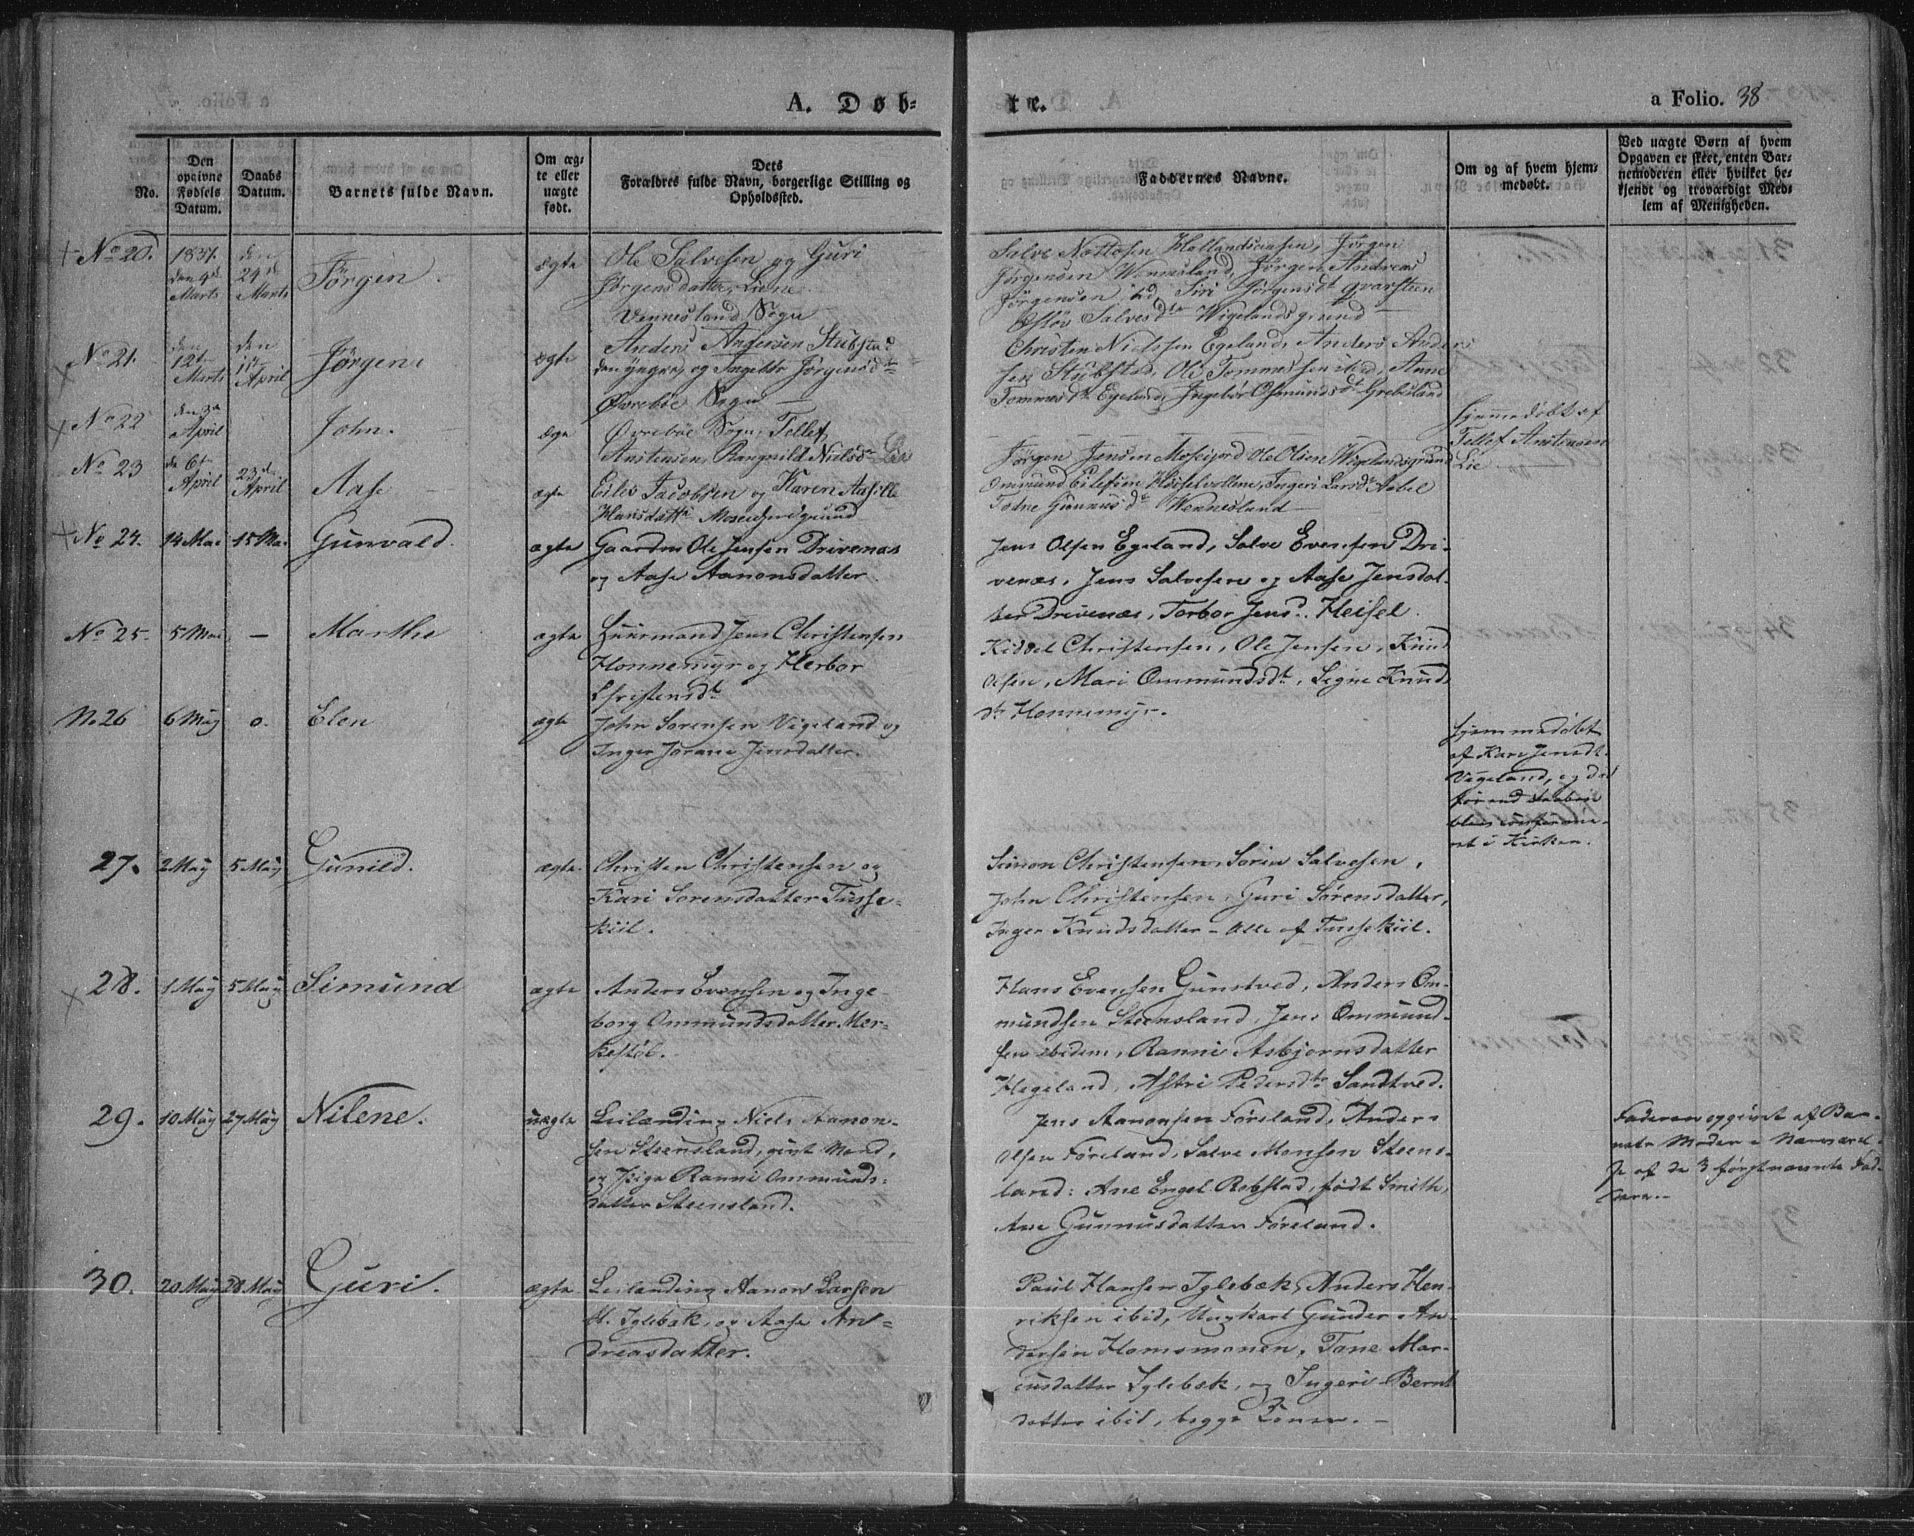 A. Døb-
te.
a Folio. 38
No.
Den
opgivne
Fødsels
Datum.
Daabs
Datum.
Barnets fulde Navn.
Om æg-
te eller
uægte
født.
Dets
Forældres fulde Navn, borgerlige Stilling og
Opholdssted.
Faddernes Navne.
Om og af hvem hjem-
medøbt.
Ved uægte Børn af hvem
Opgaven er skeet, enten Bar-
nemoderen eller hvilket be-
kjendt og troværdigt Med-
lem af Menigheden.
No 20.
1837.
den 4de
Marts
den
24de
Marts
Jörgin
ægte
Ole Salvesen og Guri
Jörgensdatter Liene
Vennesland Sogn
Salve Nottosen Hallandsaasen, Jörgen
Jörgensen Wennesland, Jörgen Andreas
Jörgensen ibid, Siri Jörgensdt Qvarsteen
Salvesdt Wigelandsgrund
No 21.
den
12te
Marts
den
April
Jörgen
ægte
Anders Andersen Stubstad
den yngre, og Ingebör Jörgensdtr
Övreböe Sogn
Christen Nielssen Egeland, Anders Ander
sen Stubstad, Ole Tommessen ibid, Anne
Tommesdt Egeland, Ingebör Osmundsdt Grebsland
No 22
April
John.
ægte
Övreböe Sogn, Tellef
Anstensen, Ragnild Nielsdtr Lie
Hjemmedöbt af
Tellef Anstensen
Lie
No 23
den 6te
April
23de
April
Aase
ægte
Eilef Jacobsen og Karen Assille
Hansdatter Moseidjordgrund
Jörgen Jensen Mosseijord Ole Olsen Wigelandsgrund
Ommund Eilefsen Hösselvollene, Ingeri Larsdt Aabel
Tone Gunnusdt Wennesland
No 24.
14 Mai
15 Mai
Gunvald.
ægte
Gaardm Ole Jensen Drivenæs
og Aase Aanonsdatter.
Jens Olsen Egeland, Salve Evensen Dri-
venæs, Jens Salvesen og Aase Jensdat-
ter Drivenæs, Torbor Jensd. Heisel.
No 25.
5 Mai
–
Marthe
ægte
Huusmand Jens Christensen
Honnemyr og Herbor
Christensdt
Kiddel Christensen, Ole Jensen, Knud
Olsen, Mari Ommundsdt, Signe Knuds
dt Honnemyr.
No. 26
6 May
o.
Elen
ægte
John Sorensen Vigeland og
Inger Jorane Jensdatter.
Hjemmedöbt
af Kari Jensdt.
Vigeland, og død
förend Daaben
blev confirme-
ret i Kirken.
27.
2 May
5 May
Gunild.
ægte
Christen Christensen og
Kari Sorensdatter Tusse-
kiil.
Simon Christensen, Sören Salvesen,
John Christensen, Guri Sörensdatter,
Inger Knudsdatter – Alle af Tussekiil.
28.
1 May
5 May
Simund
ægte
Anders Evensen og Inge-
borg Ommundsdatter Mer-
kestöl.
Hans Evensen Gunstved, Anders Om-
mundsen Steensland, Jens Ommund-
sen ibidem, Ranni Asbjornsdatter
Hegeland, Astri Pedersdtr Sandtved.
29.
10 May
27 May
Nilene.
uægte
Leilænding Niels Aanon-
sen Steensland, givt Mand,
og Pige Ranni Ommunds-
datter Steensland.
Jens Aanonsen Föreland, Anders
Olsen Föreland, Salve Monsen Steens-
land: Ane Engel Robstad, födt Smith,
Ane Gunnusdatter Föreland.
Faderen opgivet af Bar-
nets Moder i Nærværel-
se af de 3 förstnævnte Fad-
dere.
30.
20 May
28 May
Guri.
ægte
Leilænding Aanon Larsen
Iglebæk, og Aase An-
dreasdatter.
Paul Hansen Iglebæk, Anders Hen-
riksen ibid, Ungkarl Gunder An-
dersen Homsmonen, Tone Mar-
cusdatter Iglebæk, og Ingeri Bernt
datter ibid, begge Koner. –